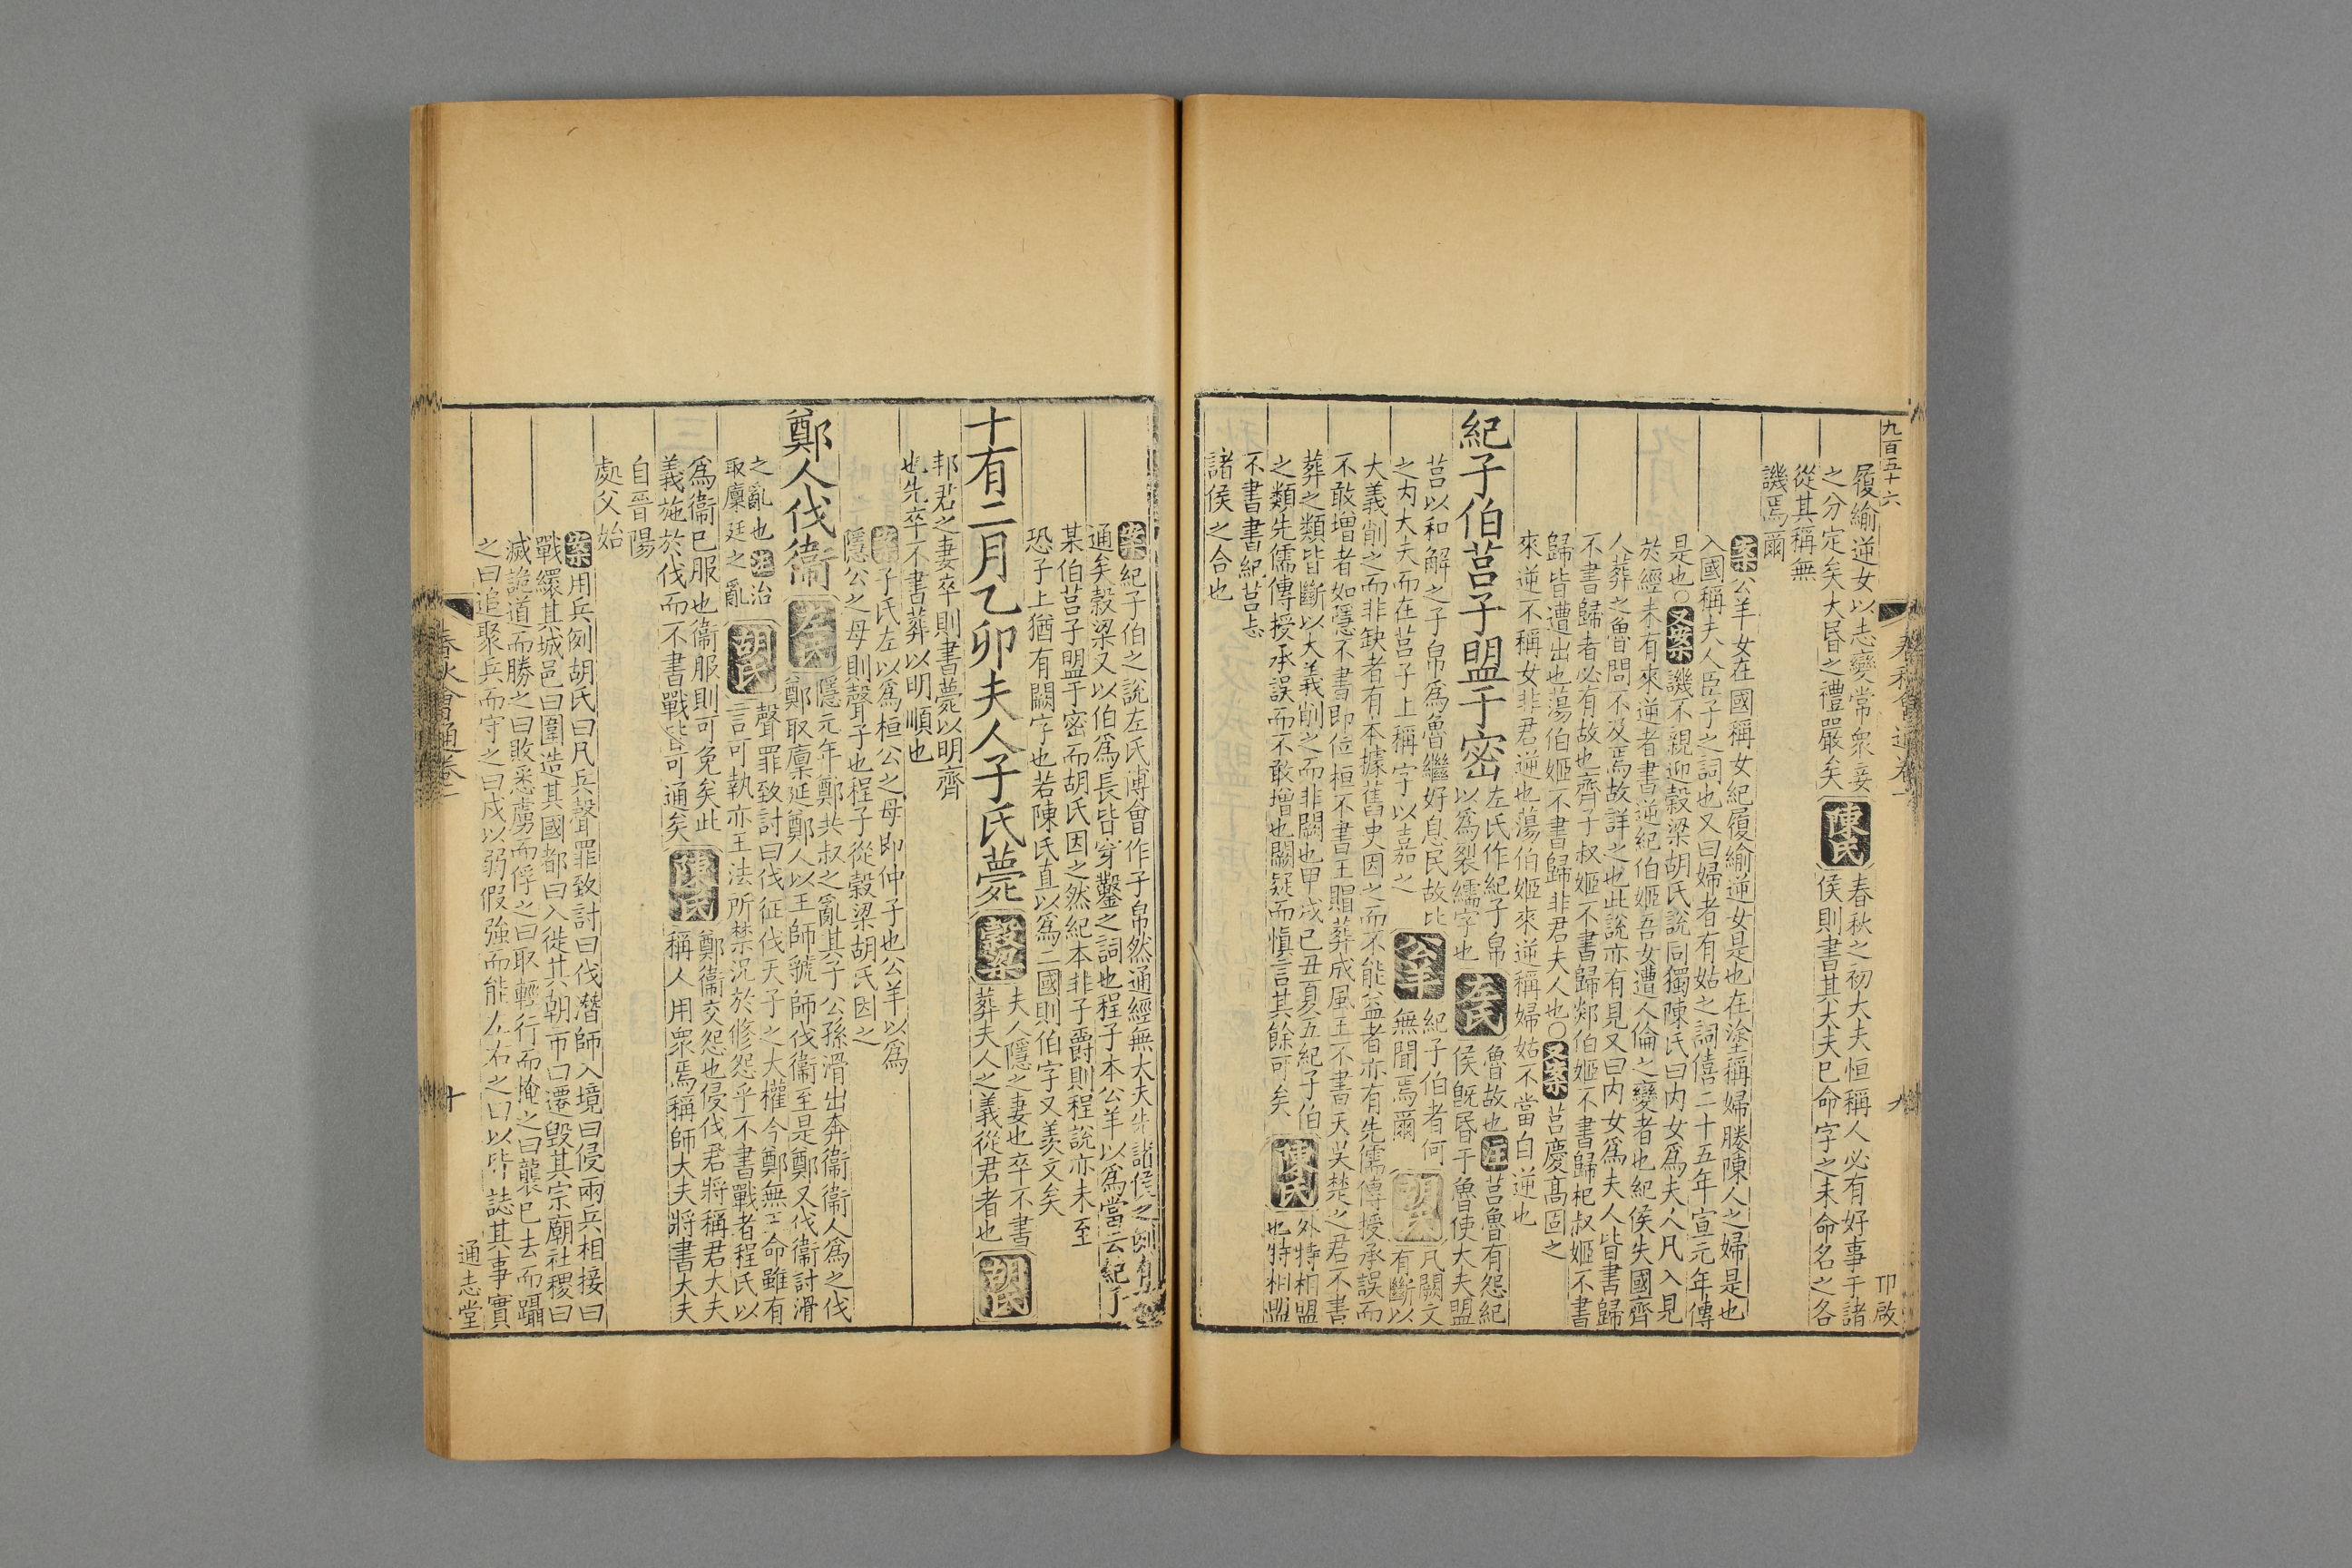 九百五十六
春秋會通卷一
九
卬啟
履緰逆女以志變常衆妾
之分定矣大昏之禮嚴矣
陳氏
春秋之初大夫恒稱人必有好事于諸
侯則書其大夫已命字之未命名之各
從其稱無
譏焉爾
案公羊女在國稱女紀履緰逆女是也在塗稱婦媵陳人之婦是也
入國稱夫人臣子之詞也又曰婦者有姑之詞僖二十五年宣元年傳
是也○又案譏不親迎穀梁胡氏說同獨陳氏曰内女爲夫人凡入見
於經未有來逆者書逆紀伯姬吾女遭人倫之變者也紀侯失國齊
人葬之魯問不及焉故詳之也此說亦有見又曰内女爲夫人皆書歸
不書歸者必有故也齊子叔姬不書歸郯伯姬不書歸杞叔姬不書
歸皆遭出也蕩伯姬不書歸非君夫人也○又案莒慶高固之
來逆不稱女非君逆也蕩伯姬來逆稱婦姑不當自逆也
紀子伯莒子盟于密
左氏作紀子帛
以爲裂繻字也
左氏
魯故也注莒魯有怨紀
侯旣昏于魯使大夫盟
莒以和解之子帛爲魯繼好息民故比
之内大夫而在莒子上稱字以嘉之
公羊
紀子伯者何
無聞焉爾
胡氏
凡闕文
有斷以
大義削之而非缺者有本據舊史因之而不能益者亦有先儒傳授承誤而
不敢增者如隱不書即位桓不書王賵葬成風王不書天吳楚之君不書
葬之類皆斷以大義削之而非闕也甲戌己丑夏五紀子伯
之類先儒傳授承誤而不敢增也闕疑而愼言其餘可矣
陳氏
外特相盟
也特相盟
不書書紀莒志
諸侯之合也
案紀子伯之說左氏溥會作子帛然通經無大夫先諸侯之例
通矣穀梁又以伯爲長皆穿鑿之詞也程子本公羊以爲當云紀子
某伯莒子盟于密而胡氏因之然紀本非子爵則程說亦未至
恐子上猶有闕字也若陳氏直以爲二國則伯字又羨文矣
十有二月乙卯夫人子氏薨
穀梁
夫人隱之妻也卒不書
葬夫人之義從君者也
胡氏
邦君之妻卒則書薨以明齊
也先卒不書葬以明順也
案子氏左以爲桓公之母即仲子也公羊以爲
隱公之母則聲子也程子從穀梁胡氏因之
鄭人伐衞
左氏
隱元年鄭共叔之亂其子公孫滑出奔衞衞人爲之伐
鄭取廩延鄭人以王師虢師伐衞至是鄭又伐衞討滑
之亂也注治
取廩延之亂
胡氏
聲罪致討曰伐征伐天子之大權今鄭無王命雖有
言可執亦王法所禁況於修怨乎不書戰者程氏以
爲衞已服也衞服則可免矣此
義施於伐而不書戰皆可通矣
陳氏
鄭衞交怨也侵伐君將稱君大夫
稱人用衆焉稱師大夫將書大夫
自晉陽
處父始
案用兵例胡氏曰凡兵聲罪致討曰伐潛師入境曰侵兩兵相接曰
戰繯其城邑曰圍造其國都曰入徙其朝市曰遷毀其宗廟社稷曰
滅詭道而勝之曰敗悉虜而俘之曰取輕行而掩之曰襲已去而躡
之曰追聚兵而守之曰戍以弱假強而能左右之曰以皆誌其事實
春秋會通卷一
十
通志堂